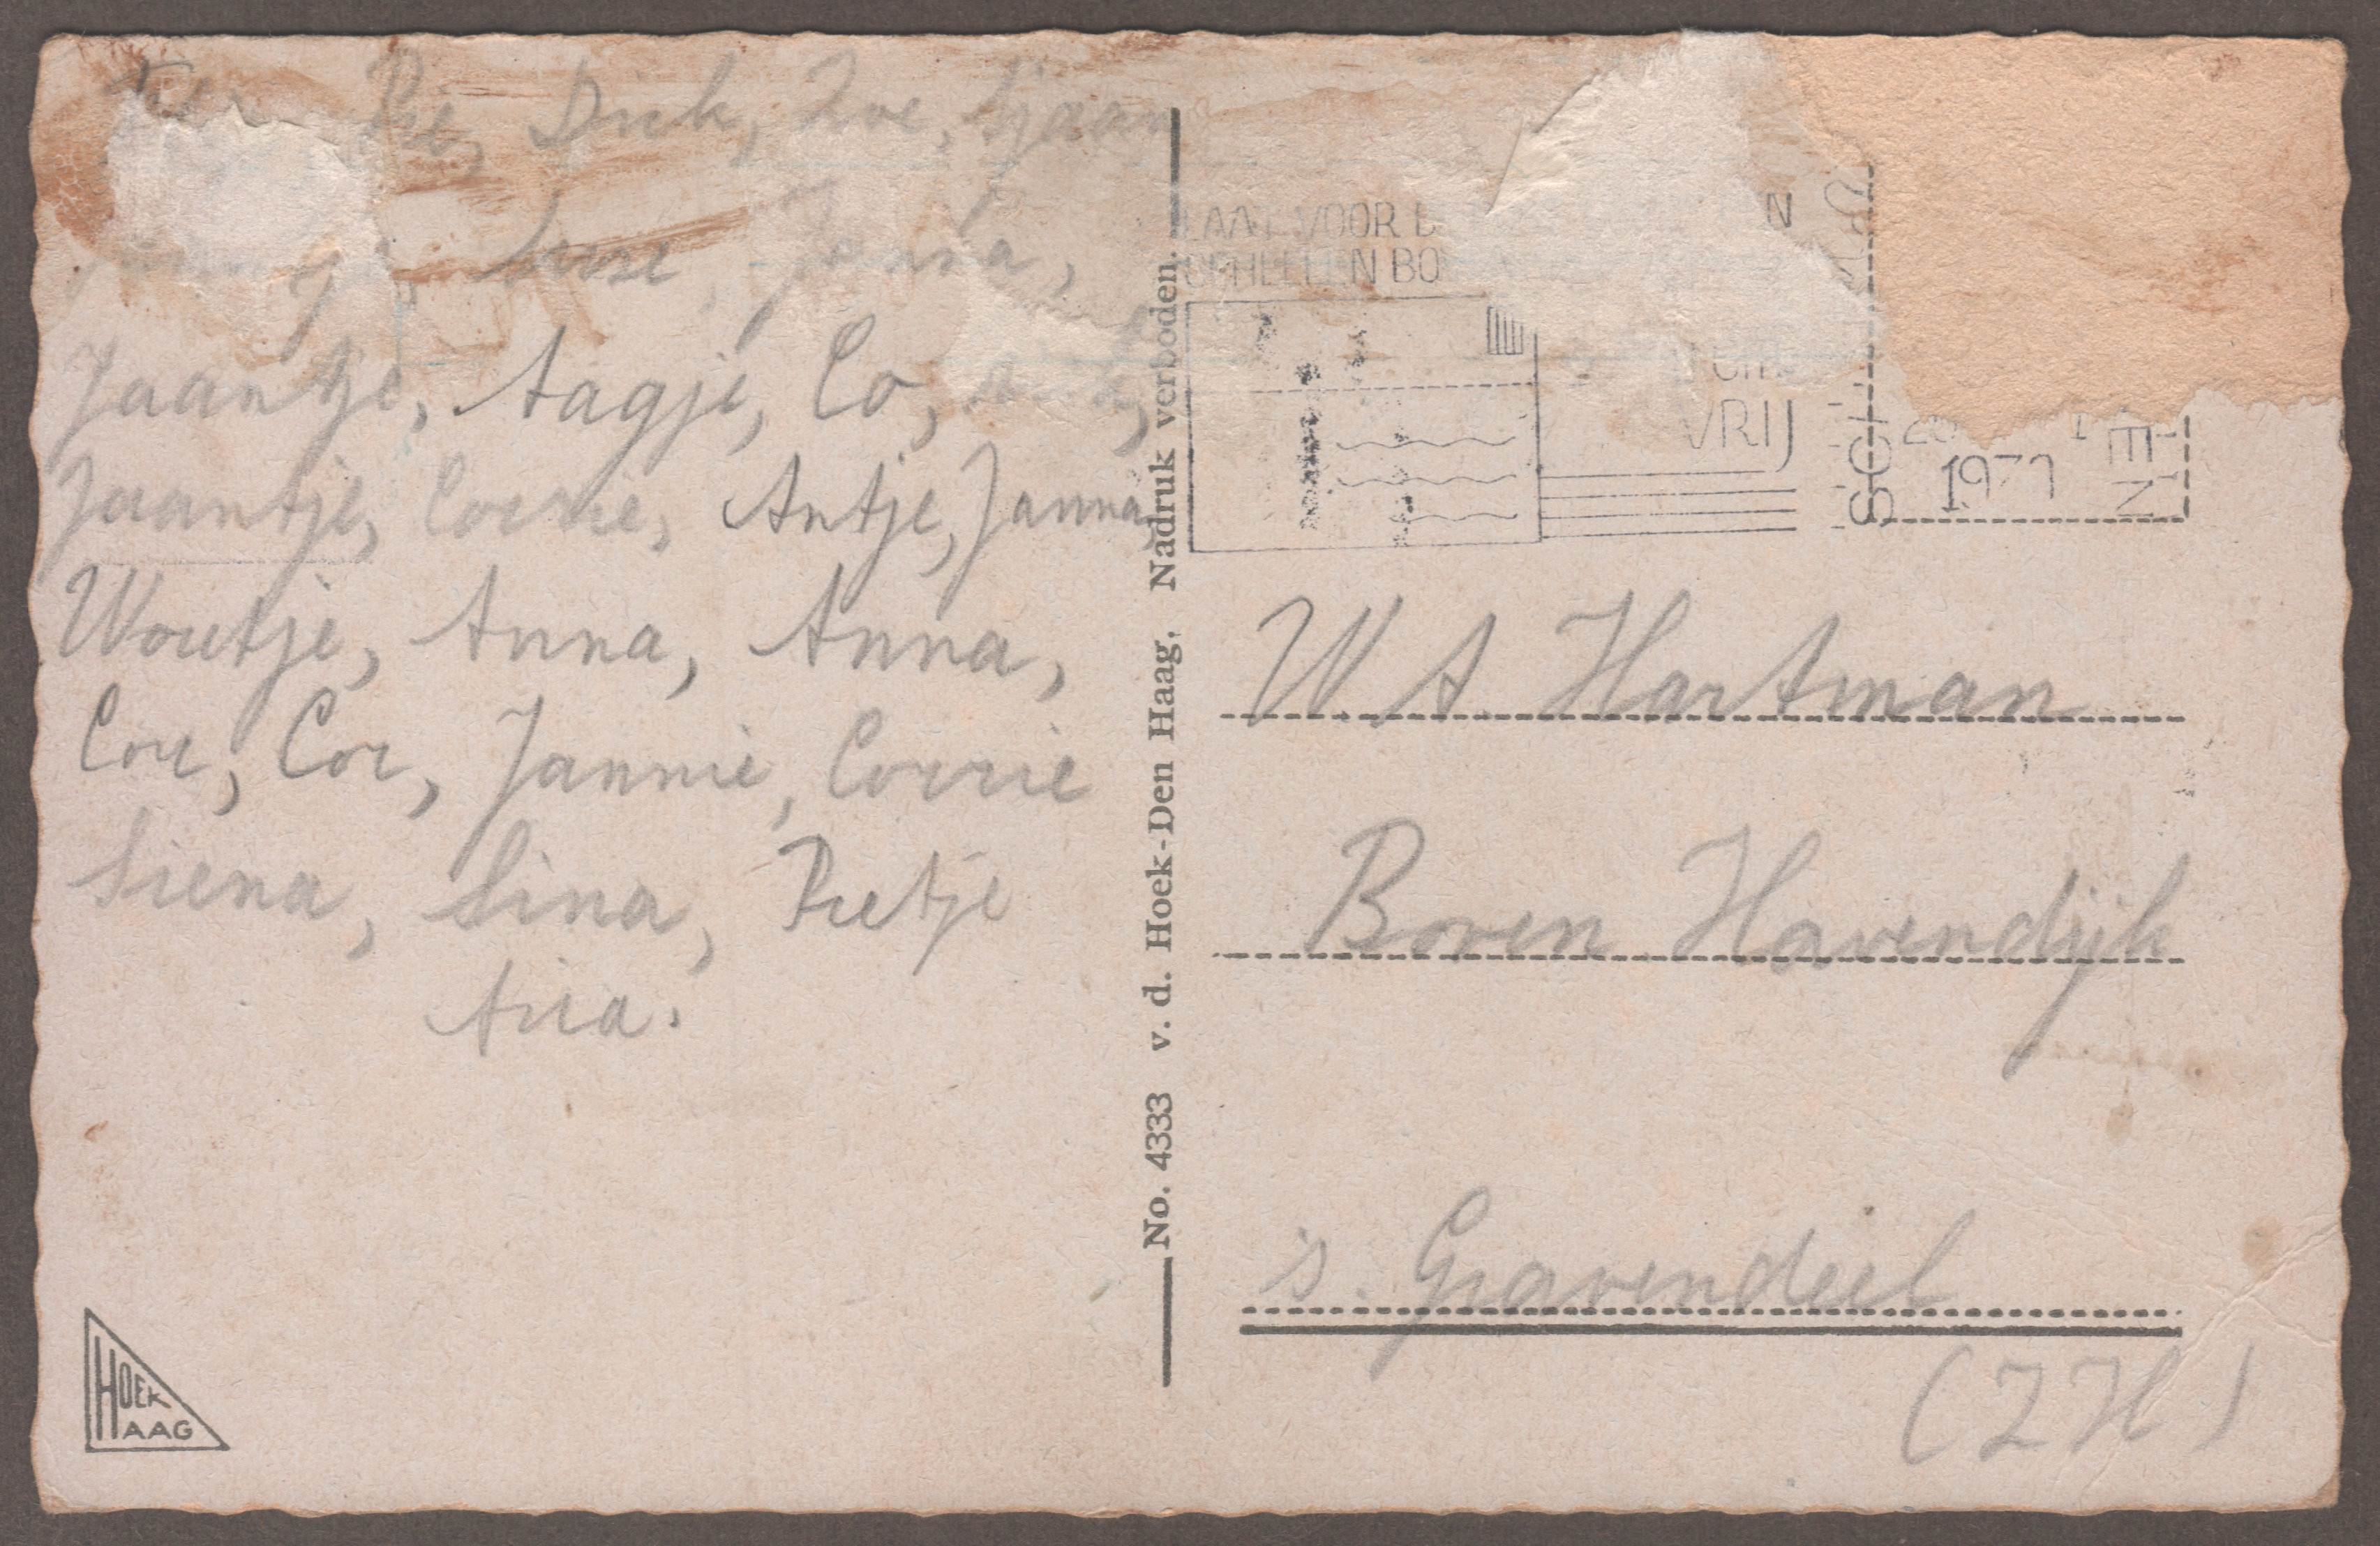 Pie, Dick, Zoe, Sjaan
Janna,
Jaantje, Aagje, Co,
Jaantje, Corrie, Antje, Janna,
Woutje, Anna, Anna,
Cor, Cor, Jannie, Corrie
Siena, Sina, Pietje
Aria.
No. 4333 v. d. Hoek-Den Haag, Nadruk verboden.
HOEK
HAAG
LAAT VOOR N
GEHELEN BO
VRIJ
W. A. Hartman
Boven Havendijk
's. Gravendeel
(ZH)